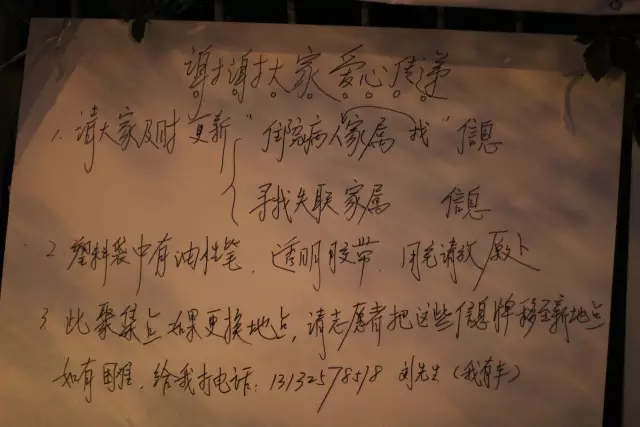 谢谢大家爱心传递
1、请大家及时更新"住院病人家属找"信息
寻找失联家属 信息
2 塑料袋中有油性笔、透明胶带,用完请放原处
3 此聚集点如果更换地点,请志愿者把这些信息牌移至新地点
如有困难,给我打电话:13132578518 刘先生(我有车)